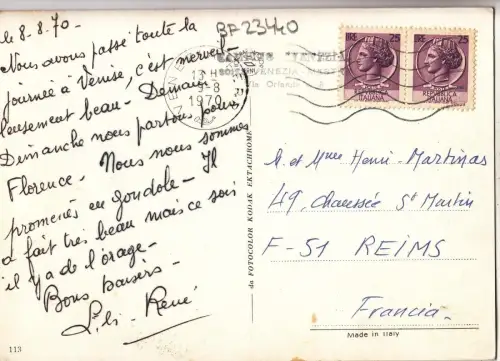 le 8.8.70-
Nous avons passé toute la
journée à Venise, c'est merveil-
leusement beau- Demain
Dimanche nous partons pour
Florence. Nous nous sommes
promenés en gondole- Il
a fait très beau mais ce soir
il y a de l'orage-
Bons baisers-
René
113
BP23440
13 H
9-8
1970
VENEZIA
LIRE 25
REPUBBLICA
ITALIANA
LIRE 25
REPUBBLICA
ITALIANA
da FOTOCOLOR KODAK EKTACHROME
M. et Mme Henri-Martinas
49, Chaussée St Martin
F-51 REIMS
Francia.
Made in Italy